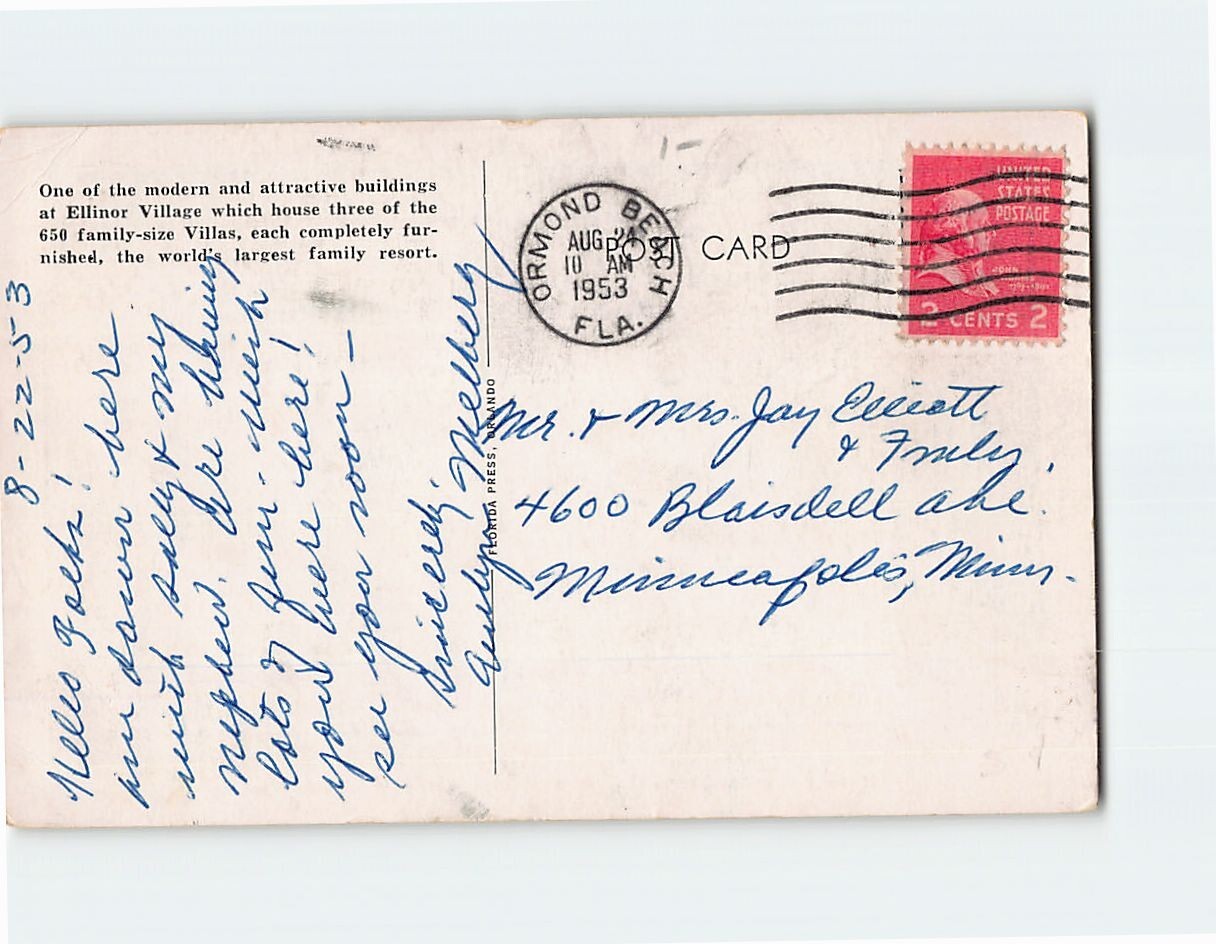 One of the modern and attractive buildings
at Ellinor Village which house three of the
650 family-size Villas, each completely fur-
nished, the world's largest family resort.
8-22-53
Hello Folks!
am down here
with Sally & my
nephew. Are having
lots of fun - wish
you were here!
see you soon -
Sincerely,
Melberg
FLORIDA PRESS, ORLANDO
ORMOND BEACH
AUG 24
10 AM
1953
FLA.
POST CARD
UNITED
STATES
POSTAGE
JOHN
2 CENTS 2
1-
Mr. & Mrs. Jay Elliott
& Family,
4600 Blaisdell Ave.
Minneapolis, Minn.